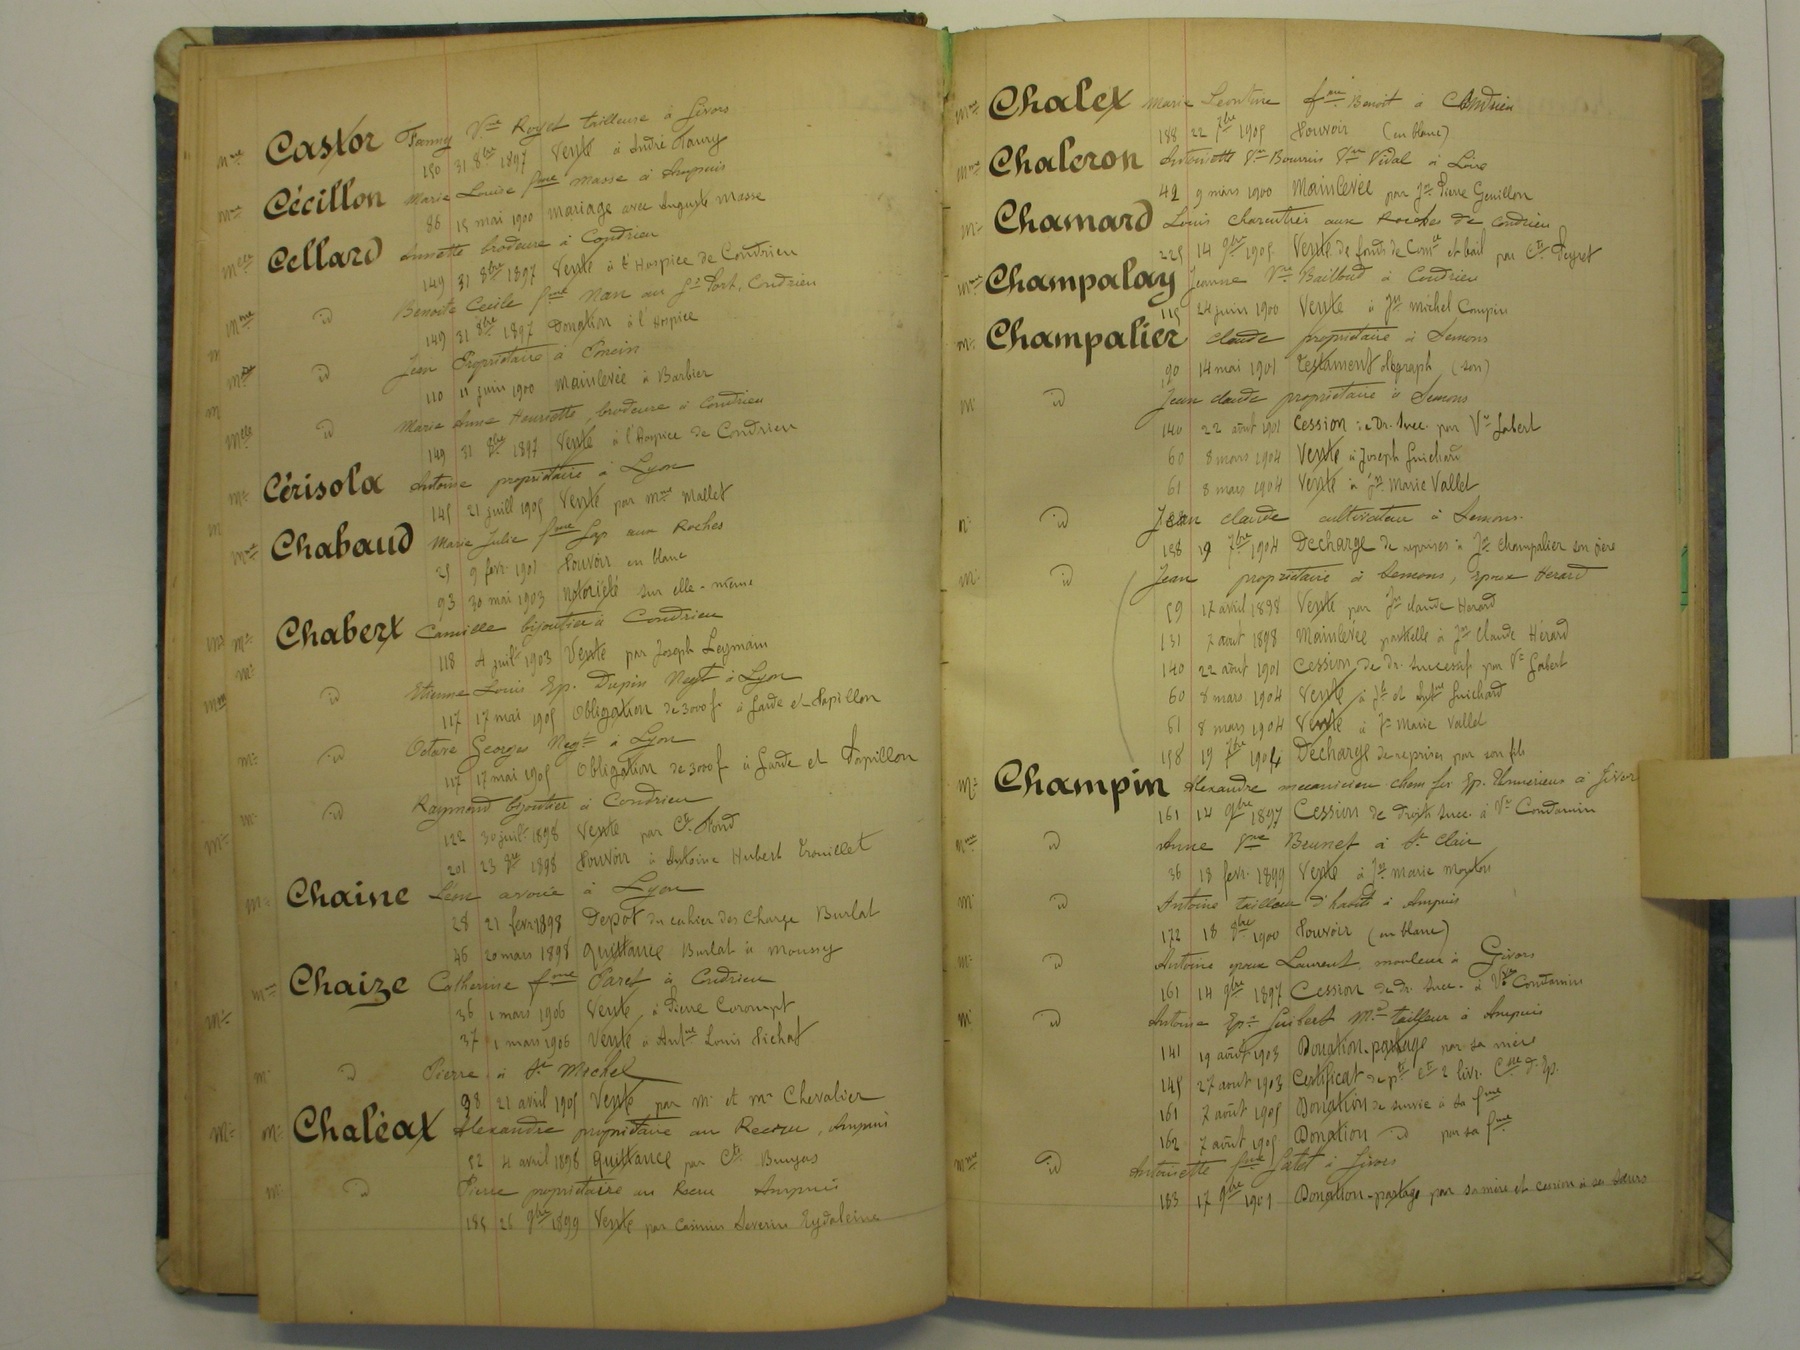 Mme Castor Fanny Vve Royet tailleuse à Givors
150 31 8bre 1897 Vente à André Maury
Mme Cécillon Marie Louise fme Masse à Ampuis
86 15 mai 1900 Mariage avec Auguste Masse
Melle Cellard Annette brodeuse à Condrieu
149 31 8bre 1897 Vente à l'Hospice de Condrieu
Mme id Benoite Cécile fme Nan au Gd Port, Condrieu
149 31 8bre 1897 Donation à l'Hospice
id Jean Propriétaire à
110 11 juin 1900 Mainlevée à Barbier
Melle id Marie Anne Henriette brodeuse à Condrieu
149 31 8bre 1897 Vente à l'Hospice de Condrieu
Mr Cérisola Antoine propriétaire à Lyon
145 21 juill 1905 Vente par Mme Mallet
Mme Chabaud Marie Julie fme Gap aux Roches
25 9 fevr. 1901 Pouvoir en blanc
93 30 mai 1903 Notoriété sur elle-même
Mr Chabert Camille bijoutier à Condrieu
118 4 juilt 1903 Vente par Joseph Leymain
id Etienne Louis Ep. Dupin Negt à Lyon
117 17 mai 1905 Obligation de 3000 f. à Garde et Papillon
Mr id Octave Georges Negt à Lyon
117 17 mai 1905 Obligation de 3000 f à Garde et Papillon
Mr id Raymond bijoutier à Condrieu
122 30 juilt 1898 Vente par Ct. Fond
201 23 8bre 1898 Pouvoir à Antoine Hubert Trouillet
Mr Chaine Léon avoué à Lyon
28 21 fevr 1898 Depôt du cahier des Charge Burlat
46 20 mars 1898 Quittance Burlat à Moussy
Mme Chaize Catherine fme Paret à Condrieu
36 1 mars 1906 Vente à Pierre Corompt
37 1 mars 1906 Vente à Antne Louis Pichat
Mr id Pierre à St Michel
98 21 avril 1905 Vente par Mr et Me Chevalier
Mr Chaléat Alexandre propriétaire au Recru, Ampuis
52 4 avril 1898 Quittance par Cts
Mr id Pierre propriétaire au Recru Ampuis
185 26 9bre 1899 Vente par Casimir Severin Eydaleine
Mme Chalet Marie Leontine fme Benoit à Condrieu
188 22 7bre 1905 Pouvoir (en blanc)
Mme Chaleron Antoinette Vve Bourrin Vve Vidal à Loire
42 9 mars 1900 Mainlevée par Jn Pierre Genillon
Mr Chamard Louis charcutier aux Roches de Condrieu
225 14 9bre 1905 Vente de fonds de Comce et bail par Cts Peyret
Mme Champalay Jeanne Vve Bailloud à Condrieu
115 24 juin 1900 Vente à Jn Michel Compin
Mr Champalier Claude propriétaire à Semons
90 14 mai 1901 Testament olograph (son)
Mr id Jean Claude propriétaire à Semons
140 22 aout 1901 Cession de Dr. Succ. par Ve Gabert
60 8 mars 1904 Vente à Joseph Guichard
61 8 mars 1904 Vente à Jn Marie Vallet
id Jean Claude cultivateur à Semons
158 19 7bre 1904 Decharge de reprises à Jn Champalier son père
Mr id Jean propriétaire à Semons, époux Herard
59 17 avril 1898 Vente par Jn Claude Herard
131 7 aout 1898 Mainlevée partielle à Jn Claude Hérard
140 22 aout 1901 Cession de dr. successif par Ve Gabert
60 8 mars 1904 Vente à Jh et Antne Guichard
61 8 mars 1904 Vente à Jn Marie Vallet
158 19 7bre 1904 Decharge de reprises par son fils
Mr Champin Alexandre mecanicien chem fer Ep. à Givors
161 14 9bre 1897 Cession de droits succ. à Ve Condamin
Mme id Anne Vve Brunet à St Clair
36 18 fevr. 1899 Vente à Jn Marie Monton
Mr id Antoine tailleur d'habits à Ampuis
172 18 8bre 1900 Pouvoir (en blanc)
Mr id Antoine époux Laurent, mouleur à Givors
161 14 9bre 1897 Cession de dr. succ. à Vve Condamin
Mr id Antoine Ep. Guibert Md tailleur à Ampuis
141 19 août 1903 Donation-partage par sa mère
145 27 aout 1903 Certificat de pté et 2 livr. Csse d'Ep.
161 7 août 1905 Donation de survie à sa fme
162 7 août 1905 Donation id par sa fme
Mme id Antoinette fme à Givors
183 17 9bre 1901 Donation-partage par sa mère et cession à sa sœurs